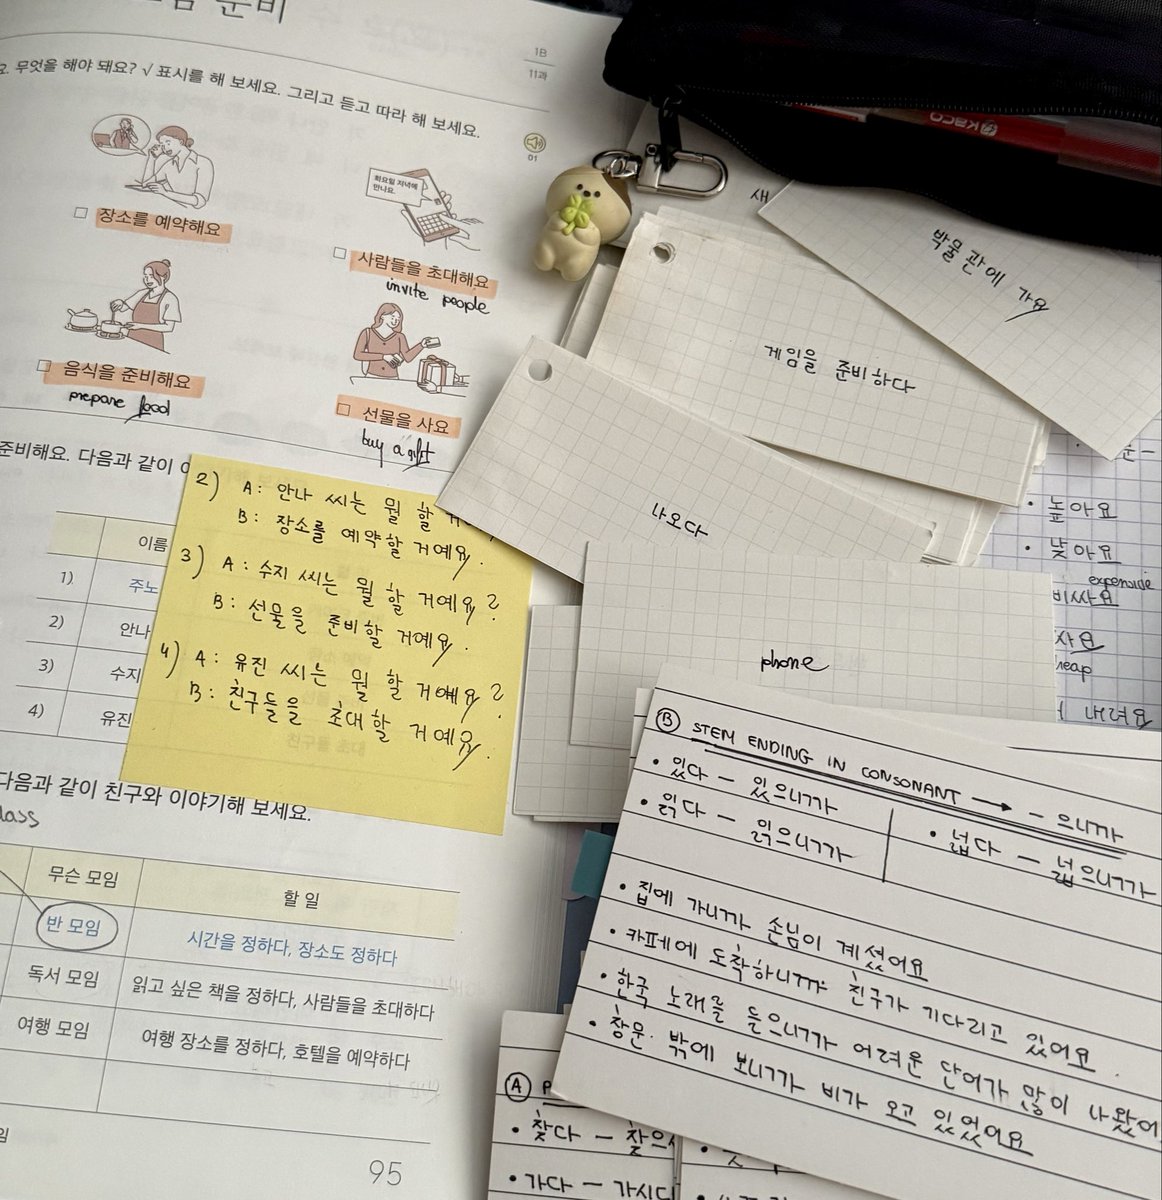 준비
1B
11과
2. 무엇을 해야 돼요? √ 표시를 해 보세요. 그리고 듣고 따라 해 보세요.
01
화요일 저녁에
만나요.
□ 장소를 예약해요
□ 사람들을 초대해요
invite people
□ 음식을 준비해요
prepare food
□ 선물을 사요
buy a gift
준비해요. 다음과 같이
이름
1) 주노
2) 안나
3) 수지
4) 유진
2) A: 안나 씨는 뭘 할
B: 장소를 예약할 거예요.
3) A: 수지 씨는 뭘 할 거예요?
B: 선물을 준비할 거예요.
4) A: 유진 씨는 뭘 할 거예요?
B: 친구들을 초대할 거예요.
다음과 같이 친구와 이야기해 보세요.
무슨 모임 할 일
반 모임 시간을 정하다, 장소도 정하다
독서 모임 읽고 싶은 책을 정하다, 사람들을 초대하다
여행 모임 여행 장소를 정하다, 호텔을 예약하다
95
kaco
새
박물관에 가요
게임을 준비하다
나오다
phone
• 높아요
• 낮아요
expensive
비싸요
내려요
Ⓑ STEM ENDING IN CONSONANT → - 으니까
• 있다 - 있으니까
• 읽다 - 읽으니까
• 넓다 - 넓으니까
• 집에 가니까 손님이 계셨어요
• 카페에 도착하니까 친구가 기다리고 있어요.
• 한국 노래를 들으니까 어려운 단어가 많이 나왔어
• 창문 밖에 보니까 비가 오고 있었어요
Ⓐ
• 찾다 - 찾으
• 가다 - 가시다